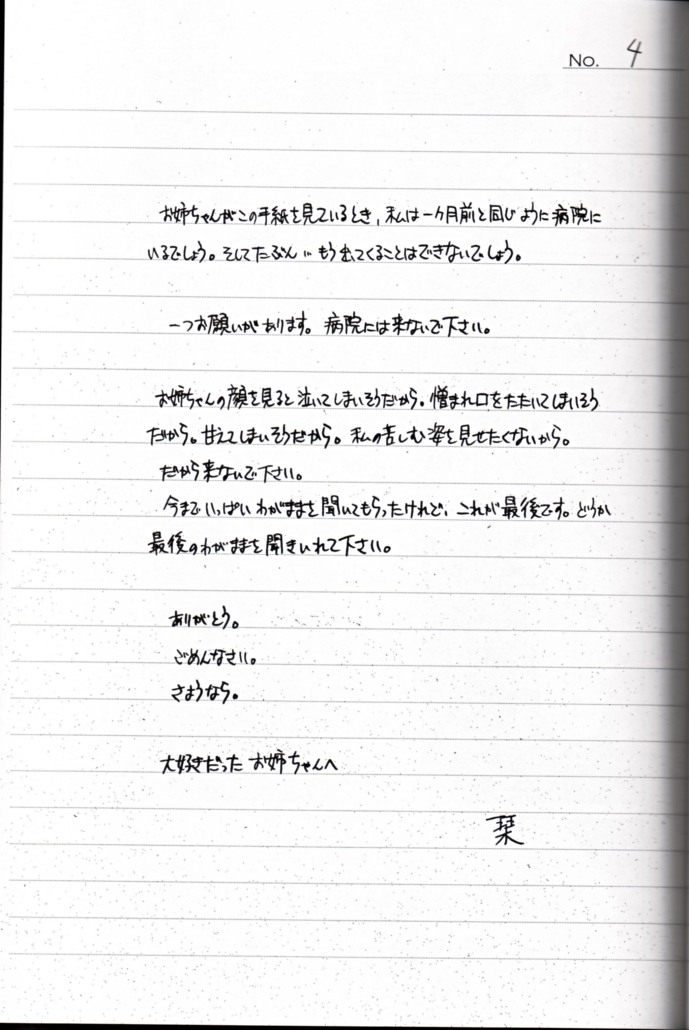 No. 4
お姉ちゃんがこの手紙を見ているとき、私は一ヶ月前と同じように病院に
いるでしょう。そしてたぶん…もう出てくることはできないでしょう。
一つお願いがあります。病院には来ないで下さい。
お姉ちゃんの顔を見ると泣いてしまいそうだから。憎まれ口をたたいてしまいそう
だから。甘えてしまいそうだから。私の苦しむ姿を見せたくないから。
だから来ないで下さい。
今までいっぱいわがままを聞いてもらったけれど、これが最後です。どうか
最後のわがままを聞きいれて下さい。
ありがとう。
ごめんなさい。
さようなら。
大好きだったお姉ちゃんへ
栞